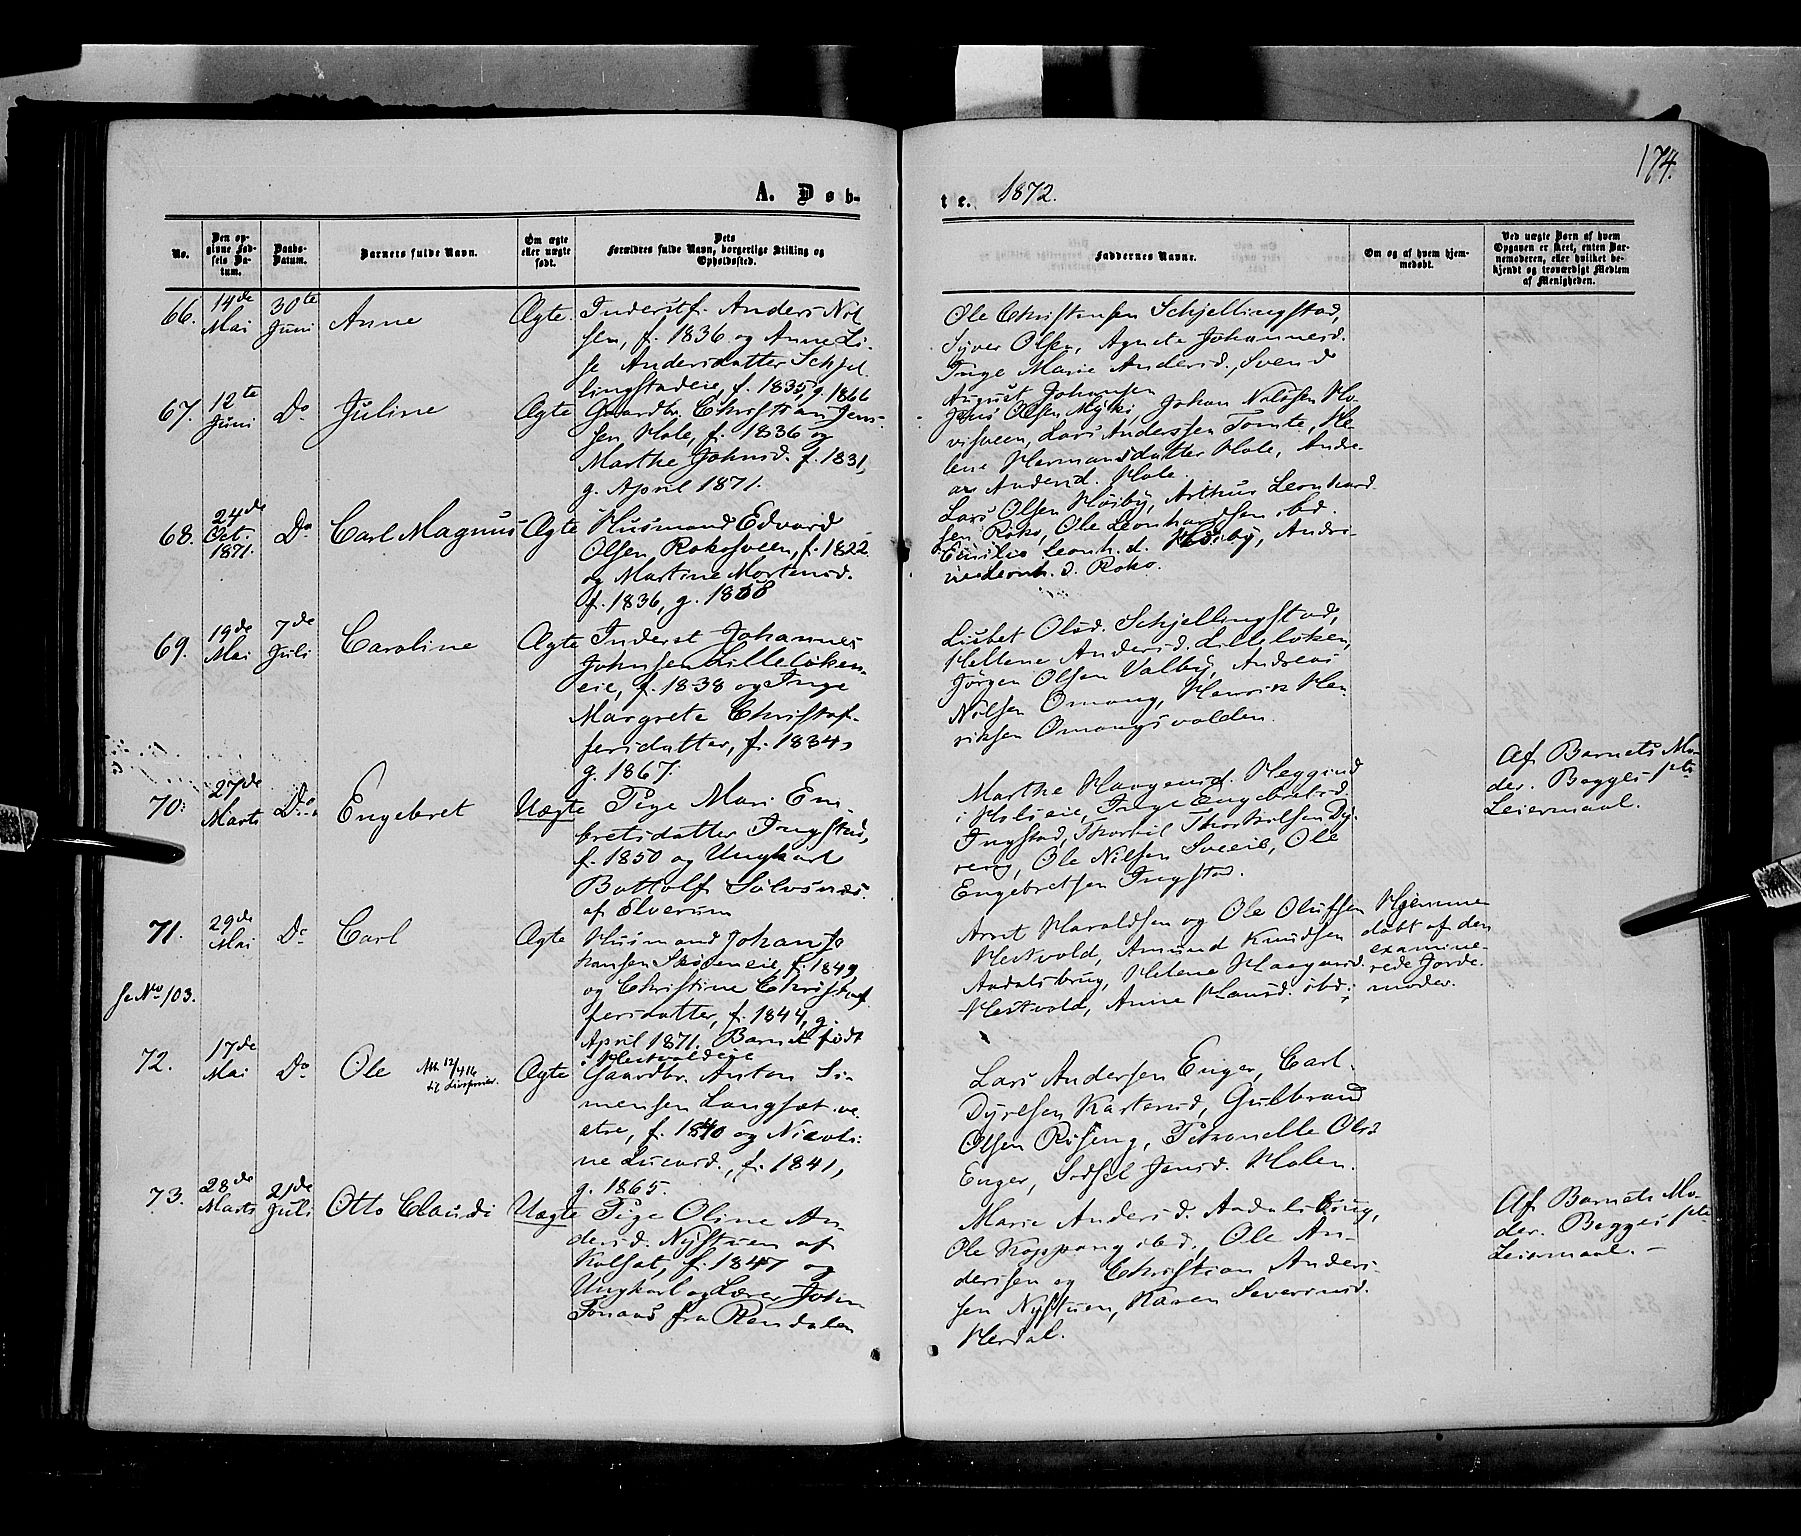 174.
A. Døb-
te. 1872.
No.
Den opginne Fødsels Datum.
Daabs-Datum.
Barnets fulde Navn.
Om ægte eller uægte født.
Dets Forældres fulde Navn, borgerlige Stilling og Opholdssted.
Faddernes Navne.
Om og af hvem hjemmedøbt.
Ved uægte Børn af hvem Opgaven er skeet, enten Barnemoderen, eller hvilket bekjendt og troværdigt Medlem af Menigheden.
66. 14de Mai 30te Juni Anne Ægte
Inderstf. Anders Nil-
sen, f. 1836 og Anne Li-
se Andersdatter Schjel-
lingstadeie, f. 1835, g. 1866
Ole Christensen Schjellingstad,
Syver Olsen, Agnete Johannesd.
Inge Marie Andersd., Svend
August Johansen
67. 12te Juni Do Juline Ægte
Gaardbr. Christian Jens-
sen, Hole, f. 1836 og
Marthe Johnsd. f. 1831,
g. April 1871.
Jens Olsen Myki, Johan Nilssen Ho-
visveen, Lars Anderssen Tomte, He-
lene Hermansdatter Hole, Andre-
as Andersd. Hole
68. 24de Oct. 1871. Do Carl Magnus Ægte
Husmand Edvard
Olsen, Rokosveen, f. 1822
og Martine Mortensd.
f. 1836, g. 1868
Lars Olsen Hosby, Arthur Leonhard-
sen Roko, Ole Leonhardsen ibd.
Emilie Leonh.d. Hosby, Andri-
ne Leonh.d. Roko.
69. 19de Mai 7de Juli Caroline Ægte
Inderst Johannes
Johnsen Lilleløken-
eie, f. 1838 og Inge
Margrete Christof-
fersdatter, f. 1834,
g. 1867.
Lisbet Olsd. Schjellingstad,
Hellene Andersd. Lilleløken,
Jørgen Olsen Valby, Andreas
Nilsen Omang, Henrik Hen-
riksen Omangsvolden.
70. 27de Marts Do Engebret Uægte
Pige Mari Em-
bretsdatter Ingstad,
f. 1850 og Ungkarl
Bottolf Sølvsnæs
af Elverum
Marthe Haagensd. Heggund
i Holieie, Inge Engebretsd.
Ingstad, Thorkil Thorkelsen Dy-
reng, Ole Nilsen Sveeie, Ole
Engebretsen Ingstad.
Af Barnets Mo-
der. Begges 1ste
Leiermaal.
71. 29de Mai Do Carl Ægte
Husmand Johan Jo-
hansen Skøieneie, f. 1849
og Christine Christof-
fersdatter, f. 1844, g.
April 1871. Barnet født
i Hestvoldeie
Arnt Haraldsen og Ole Olufsen
Hestvold, Amund Knudsen
Aadalsbrug, Helene Haagensd.
Hestvold, Anne Hansd. ibd.;
Hjemme
døbt af den
examine-
rede Jorde-
moder.
se No 103.
72. 17de Mai Do Ole Att. 12/4 16 Ægte
Gaardbr. Anton Si-
mensen Langsæt ve-
stre, f. 1840 og Nicoli-
ne Lucasd., f. 1841,
g. 1865.
Lars Andersen Enger, Carl
Dyresen Karterud, Gulbrand
Olsen Røseng, Petronelle Olsd
Enger, Sidsel Jensd. Holen.
73. 28de Marts 21de Juli Otto Claudi Uægte
Pige Oline An-
dersd. Nystuen af
Kolsat, f. 1847 og
Ungkarl og Lærer John
Jonaas fra Rendalen
Marie Andersd. Aadalsbrug,
Ole Koppang ibd., Ole An-
dersen og Christian Anders-
sen Nystuen, Karen Severinsd.
Herdal.
Af Barnets Mo-
der. Begges 1ste
Leiermaal. –